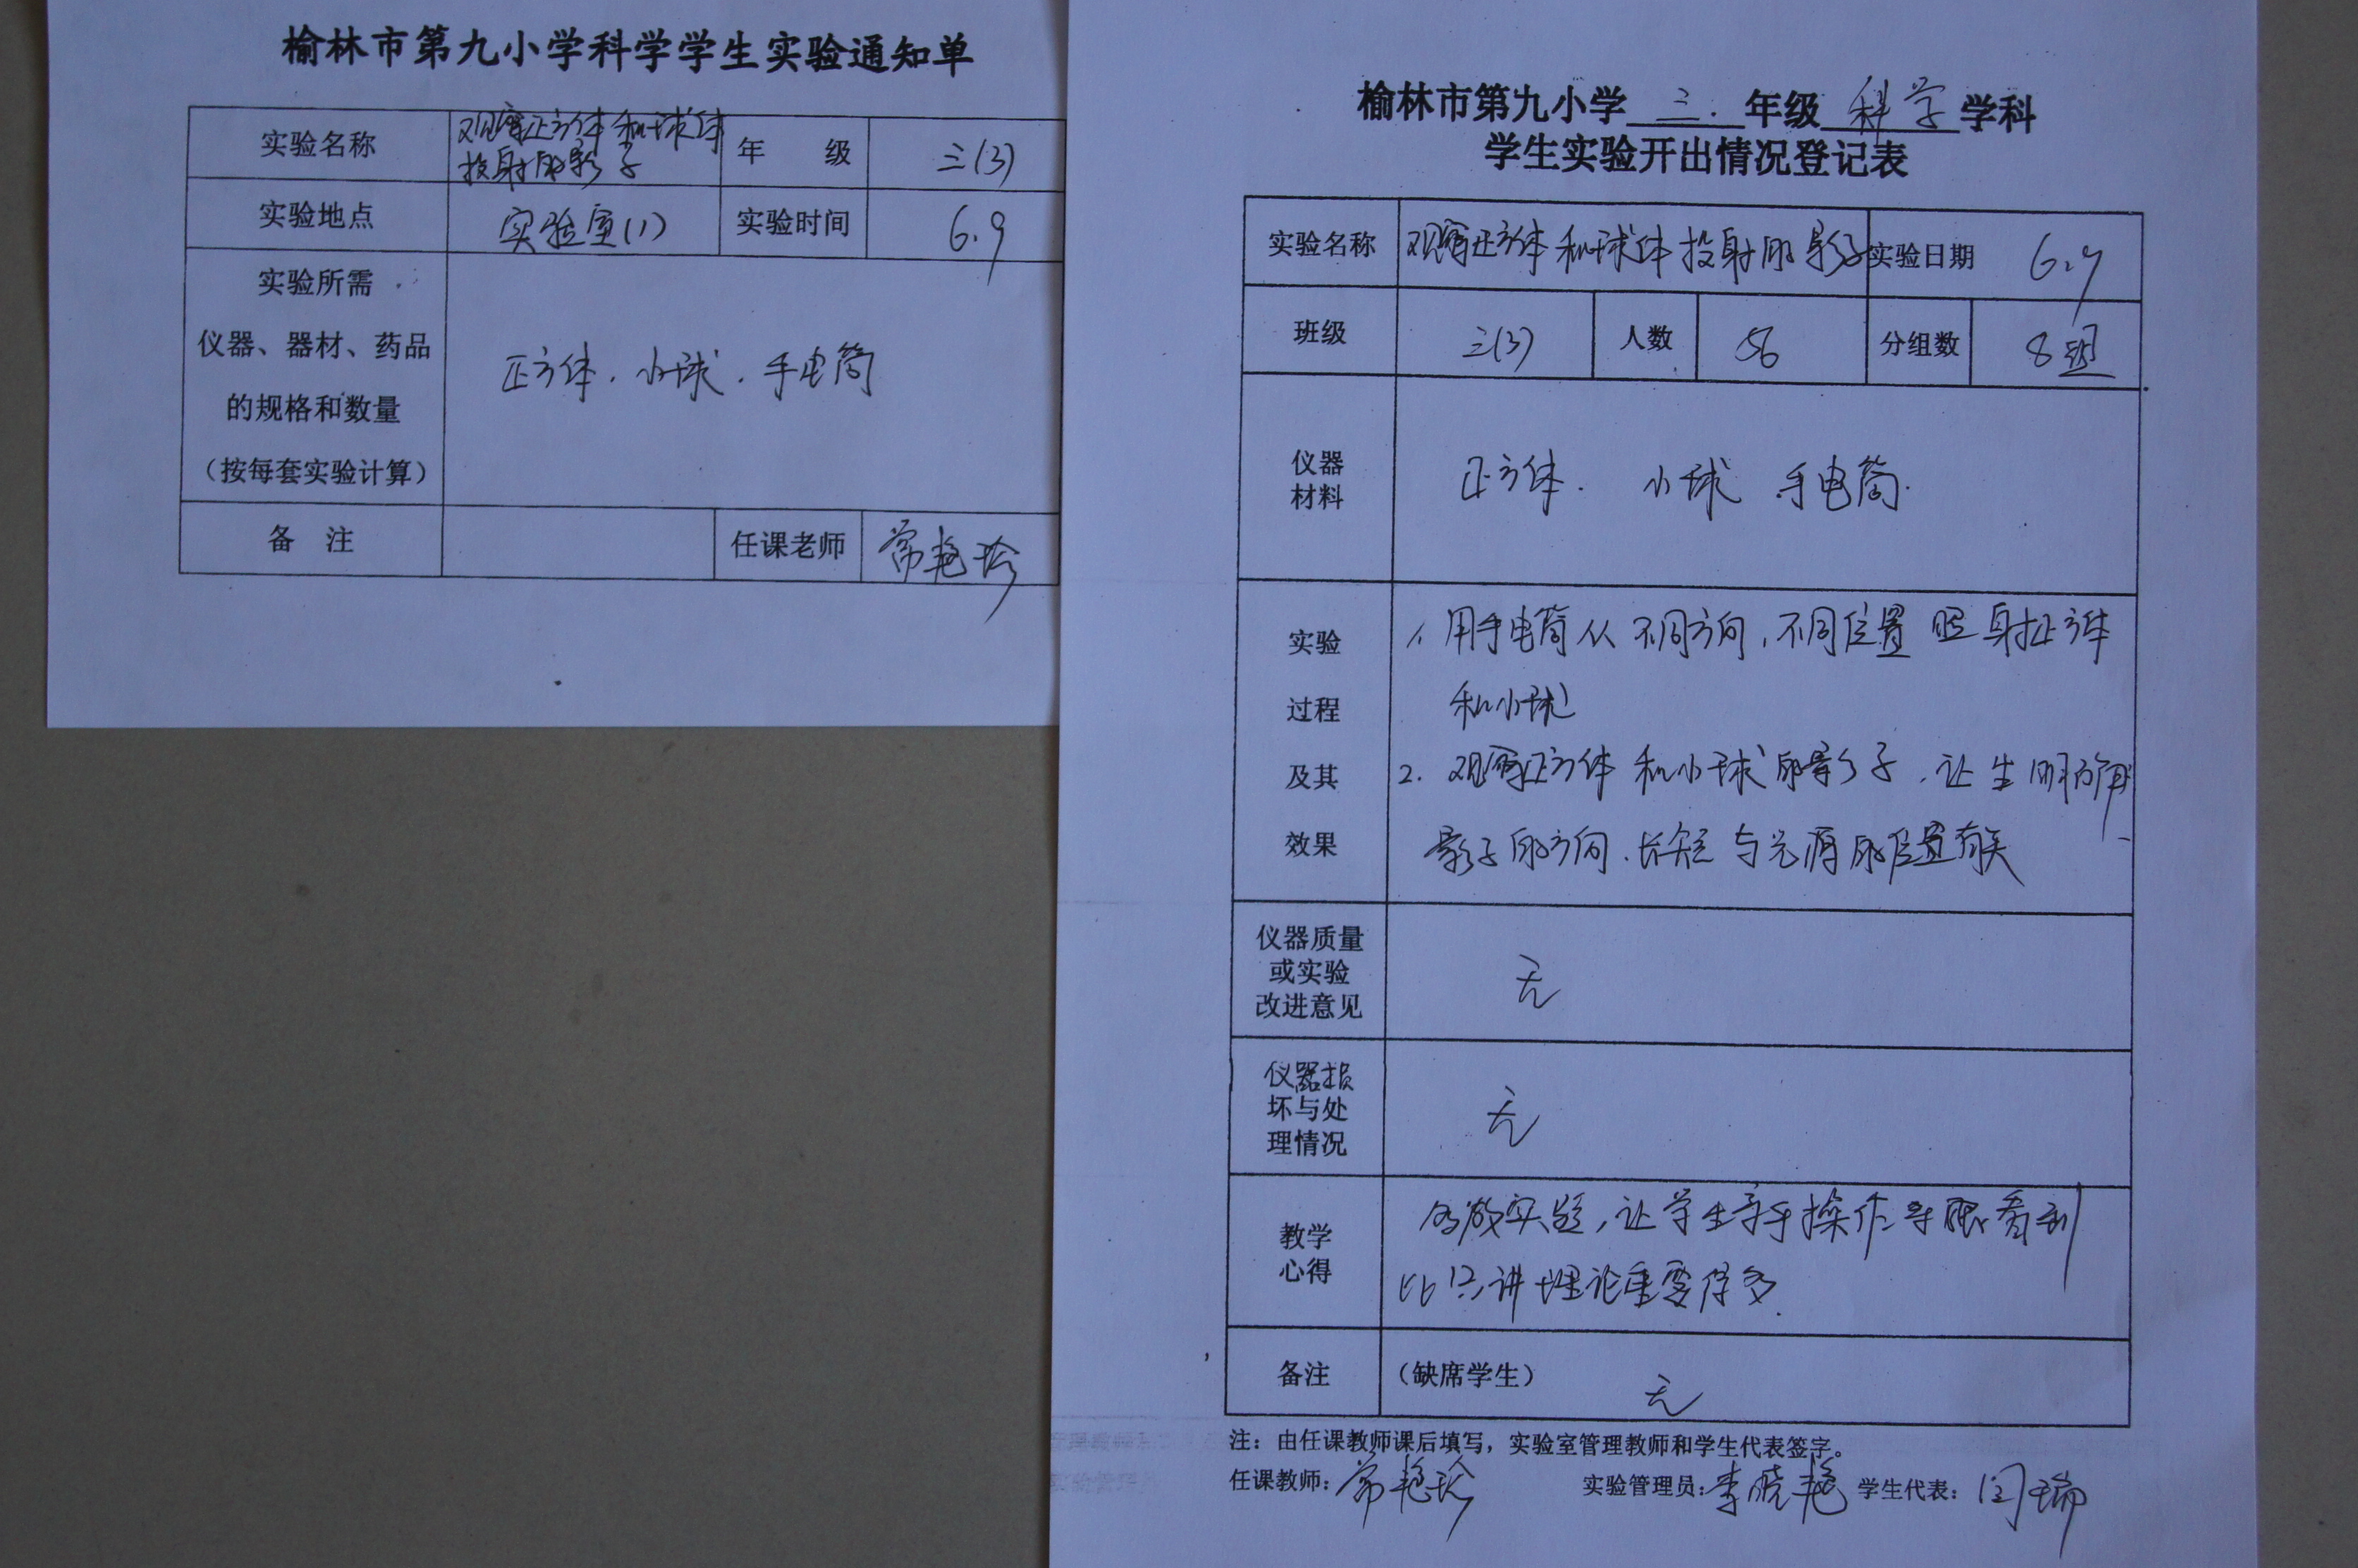 榆林市第九小学科学学生实验通知单
实验名称 观察正方体和球体投射的影子 年 级 三(3)
实验地点 实验室(1) 实验时间 6.9
实验所需
仪器、器材、药品
的规格和数量
(按每套实验计算)
正方体、小球、手电筒
备 注 任课老师 常艳玲
榆林市第九小学 三 年级 科学 学科
学生实验开出情况登记表
实验名称 观察正方体和球体投射的影子 实验日期 6.9
班级 三(3) 人数 56 分组数 8组
仪器
材料
正方体. 小球 手电筒.
实验
过程
及其
效果
1、用手电筒从不同方向,不同位置照射正方体
和小球
2. 观察正方体和小球的影子,让生明确
影子的方向、长短与光源的位置有关
仪器质量
或实验
改进意见
无
仪器损
坏与处
理情况
无
教学
心得
多做实验,让学生亲手操作亲眼看到
比只讲理论重要得多.
备注 (缺席学生) 无
注:由任课教师课后填写,实验室管理教师和学生代表签字。
任课教师:常艳玲 实验管理员:李晓艳 学生代表:闫瑞